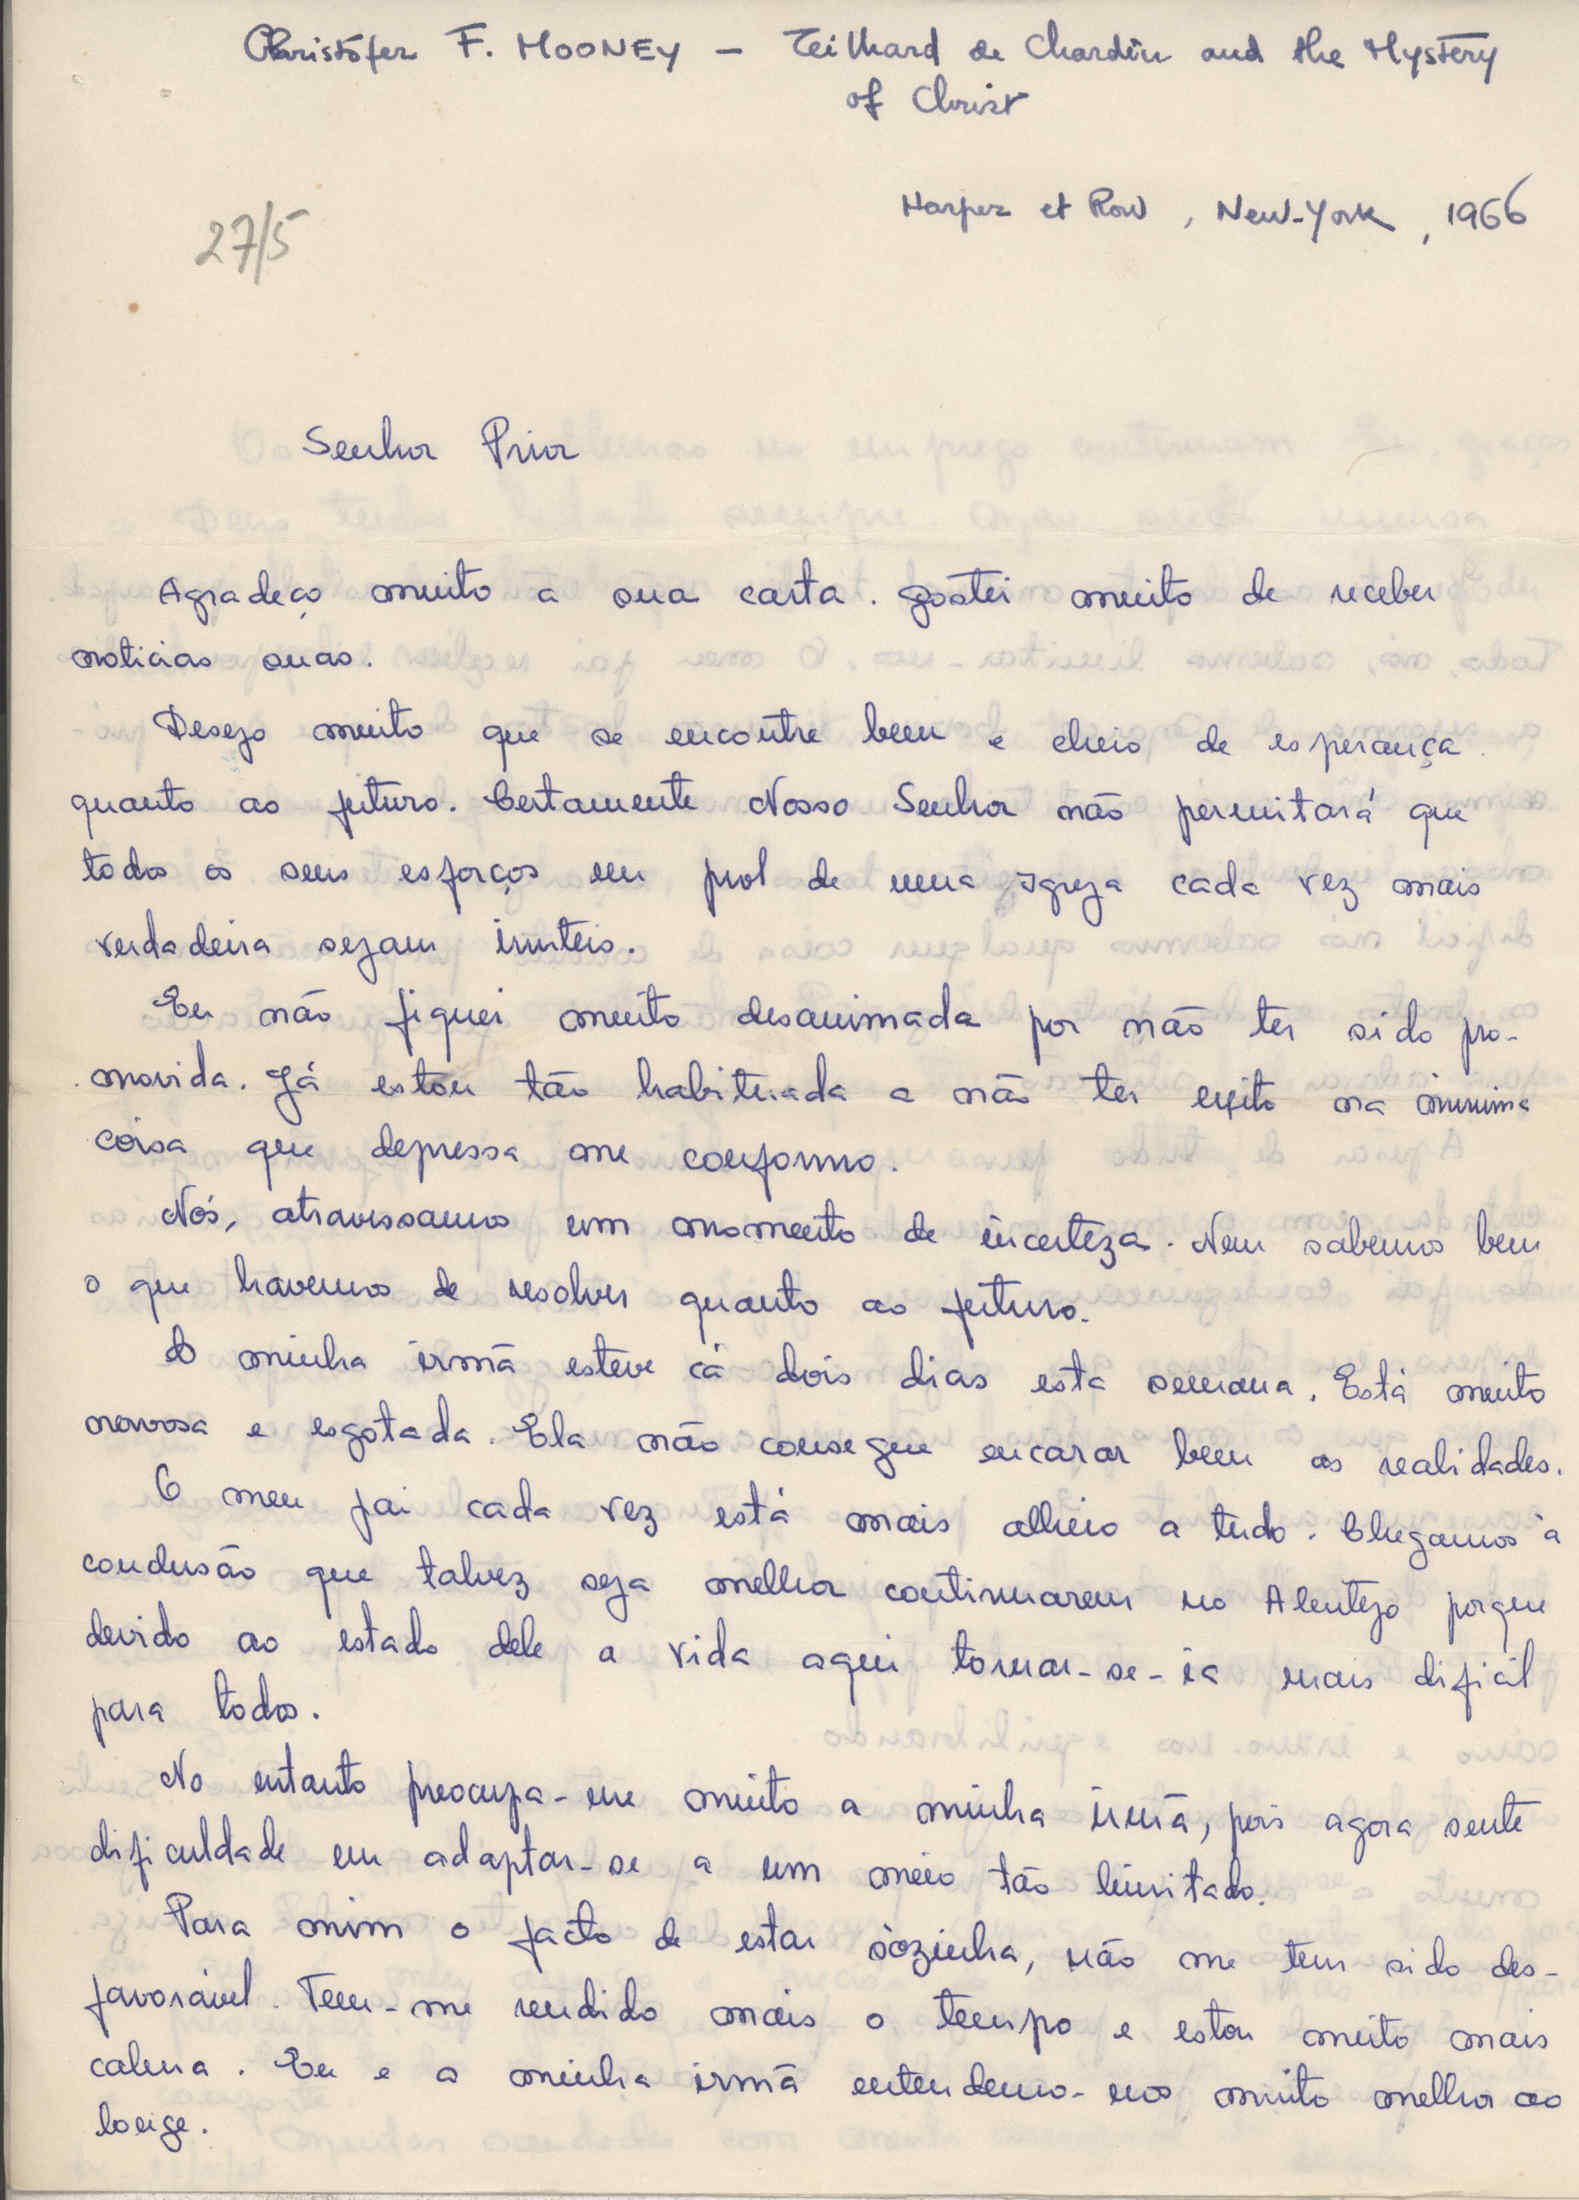 Christófer F. MOONEY – Teilhard de Chardin and the Mystery
of Christ
Harper et Row, New-York, 1966
27/5
Senhor Prior
Agradeço muito a sua carta. Gostei muito de receber
noticias suas.
Desejo muito que se encontre bem e cheio de esperança
quanto ao futuro. Certamente Nosso Senhor não permitará que
todos os seus esforços em prol de uma Igreja cada vez mais
verdadeira sejam inuteis.
Eu não fiquei muito desanimada por não ter sido pro-
movida. Já estou tão habituada a não ter exito na minima
coisa que depressa me conformo.
Nós, atravessamos um momento de incerteza. Nem sabemos bem
o que havemos de resolver quanto ao futuro.
A minha irmã esteve cá dois dias esta semana. Está muito
nervosa e esgotada. Ela não consegue encarar bem as realidades.
O meu pai cada vez está mais alheio a tudo. Chegamos à
conclusão que talvez seja melhor continuarem no Alentejo porque
devido ao estado dele a vida aqui tornar-se-ia mais dificil
para todos.
No entanto preocupa-me muito a minha irmã, pois agora sente
dificuldade em adaptar-se a um meio tão limitado.
Para mim o facto de estar sòzinha, não me tem sido des-
favorável. Tem-me rendido mais o tempo e estou muito mais
calma. Eu e a minha irmã entendemo-nos muito melhor ao
longe.